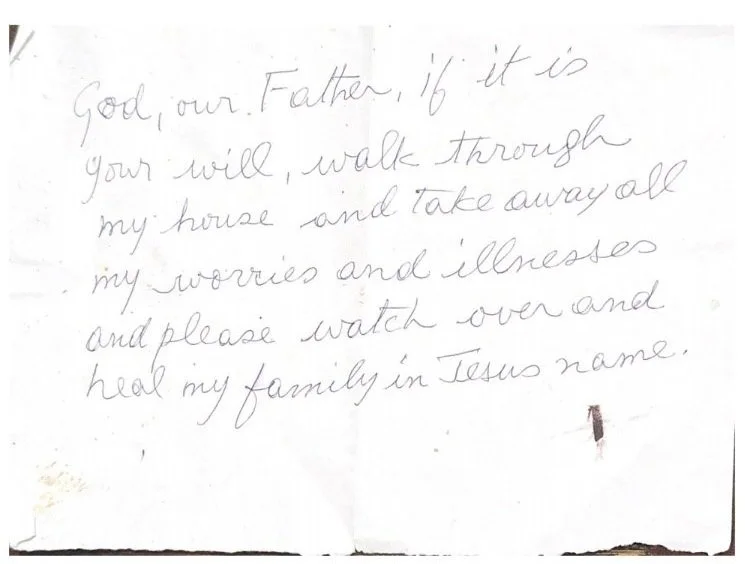 God, our Father, if it is
your will, walk through
my house and take away all
my worries and illnesses
and please watch over and
heal my family in Jesus name.